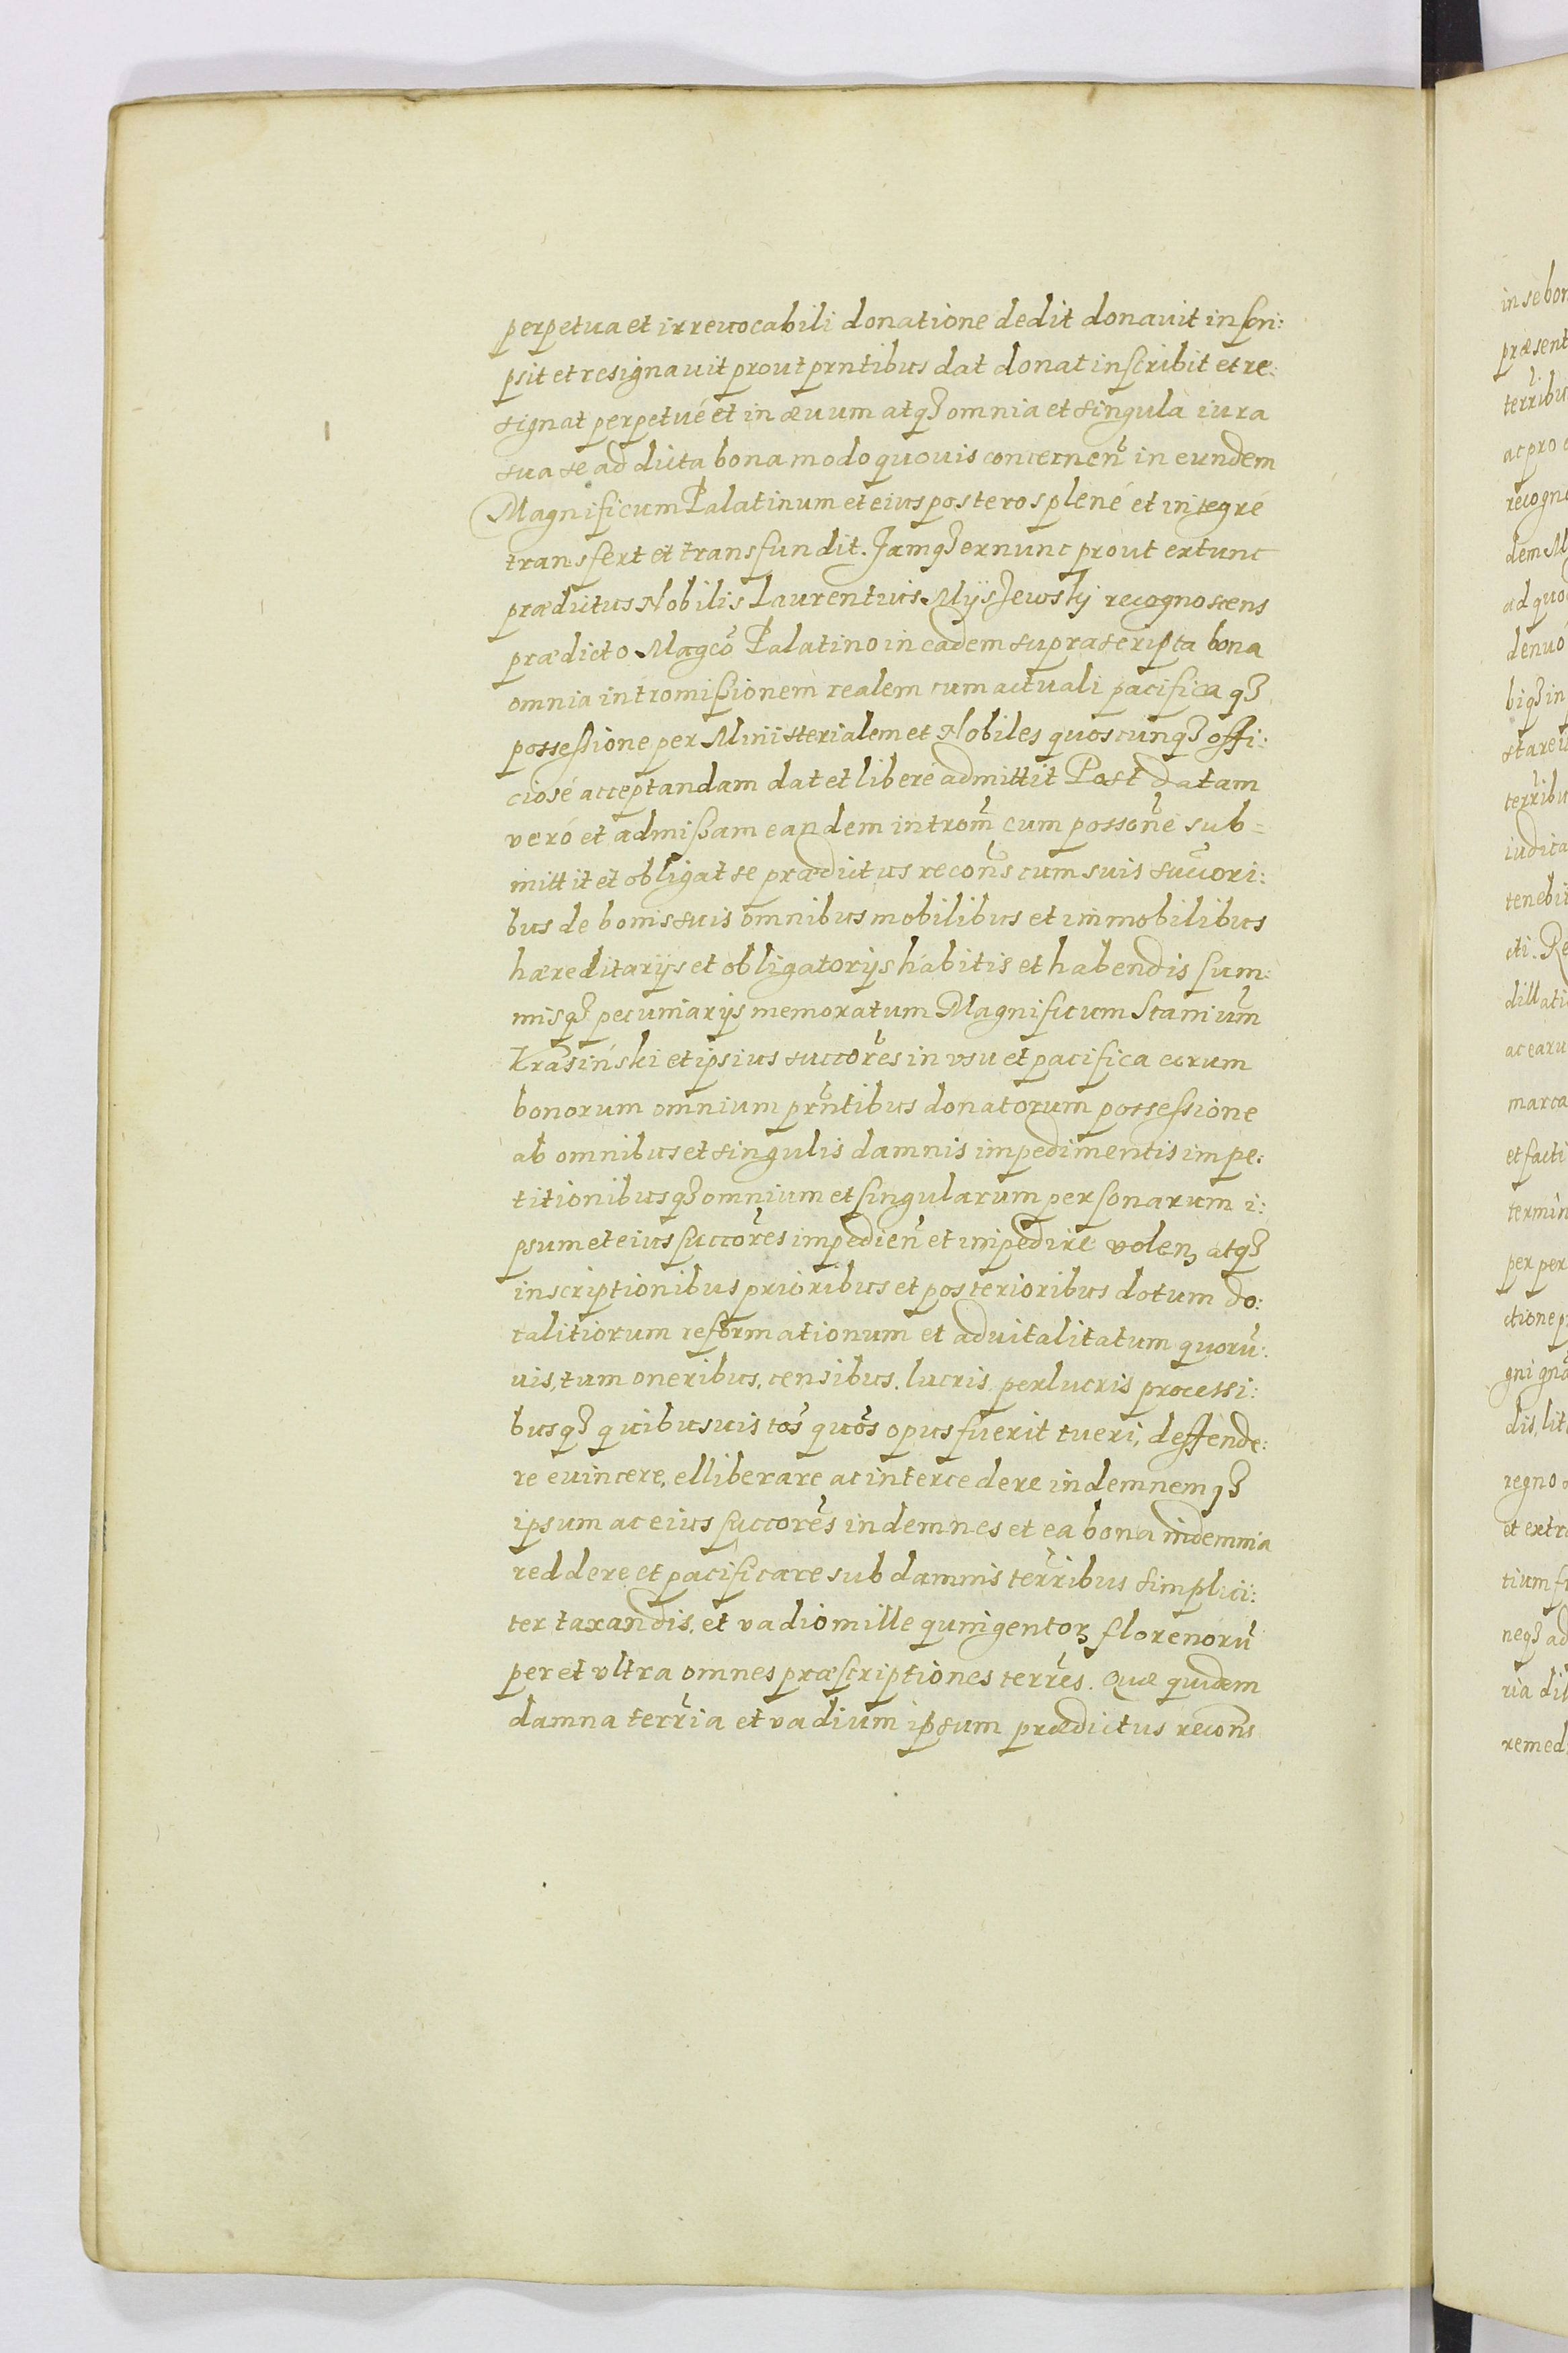 perpetua et irreuocabili donatione dedit donauit inscri:
psit et resignauit prout prntibus dat donat inscribit et re:
signat perpetué et in æuum atq3 omnia et singula iura
sua se ad dicta bona modo quouis concernen̄ in eundem
Magnificum Palatinum et eius posteros plené et integré
transfert et transfundit. Jamq3 exnunc prout extunc
prædictus Nobilis Laurentius recognoscens
prædicto Magco̅ Palatino in eadem suprascripta bona
omnia intromißionem realem cum actuali pacifica q3
possessione per Ministerialem et Nobiles quoscunq3 offi:
ciosé acceptandam dat et liberé admittit Post datam
veró et admißam eandem introm̅ cum possone̅ sub=
mittit et obligat se prædictus recon̅s cum suis succori:
bus de bonis suis omnibus mobilibus et immobilibus
hæreditarijs et obligatorijs habitis et habendis sum:
misq3 pecuniarijs memoratum Magnificum Staniu̅m
Krasiński et ipsius succore̅s in vsu et pacifica eorum
bonorum omnium prn̅tibus donatorum possessione
ab omnibus et singulis damnis impedimentis impe:
titionibusq3 omnium et singularum personarum i:
psum et eius succore̅s impedien̅ et impedire volen3 atq3
inscriptionibus prioribus et posterioribus dotum do:
talitiorum reformationum et aduitalitatum quoru̅:
uis, tum oneribus, censibus, lucris, perlucris processi:
busq3 quibusuis to̅s quo̅s opus fuerit tueri, deffende:
re euincere, elliberare ac intercedere indemnemq3
ipsum ac eius succore̅s indemnes et ea bona indemnia
reddere et pacificare sub damnis terr̅ibus simplici:
ter taxandis, et vadio mille quingentor3 florenoru̅
per et vltra omnes præscriptiones terr̅es. Quæ quidem
damna terr̅ia et vadium ipsum prædictus recon̅s
in se bon
præsent
terr̅ibu
ac pro
recogn
dem M
ad quo
denuó
biq3 in
stare
terr̅ibu
iudica
tenebit
cti. Re
dillati
ac earu
marca
et facti
termin
per per
ctione p
gni gn
dis, lit
regno
et extr
tium f
neq3 ad
ria dil
remed